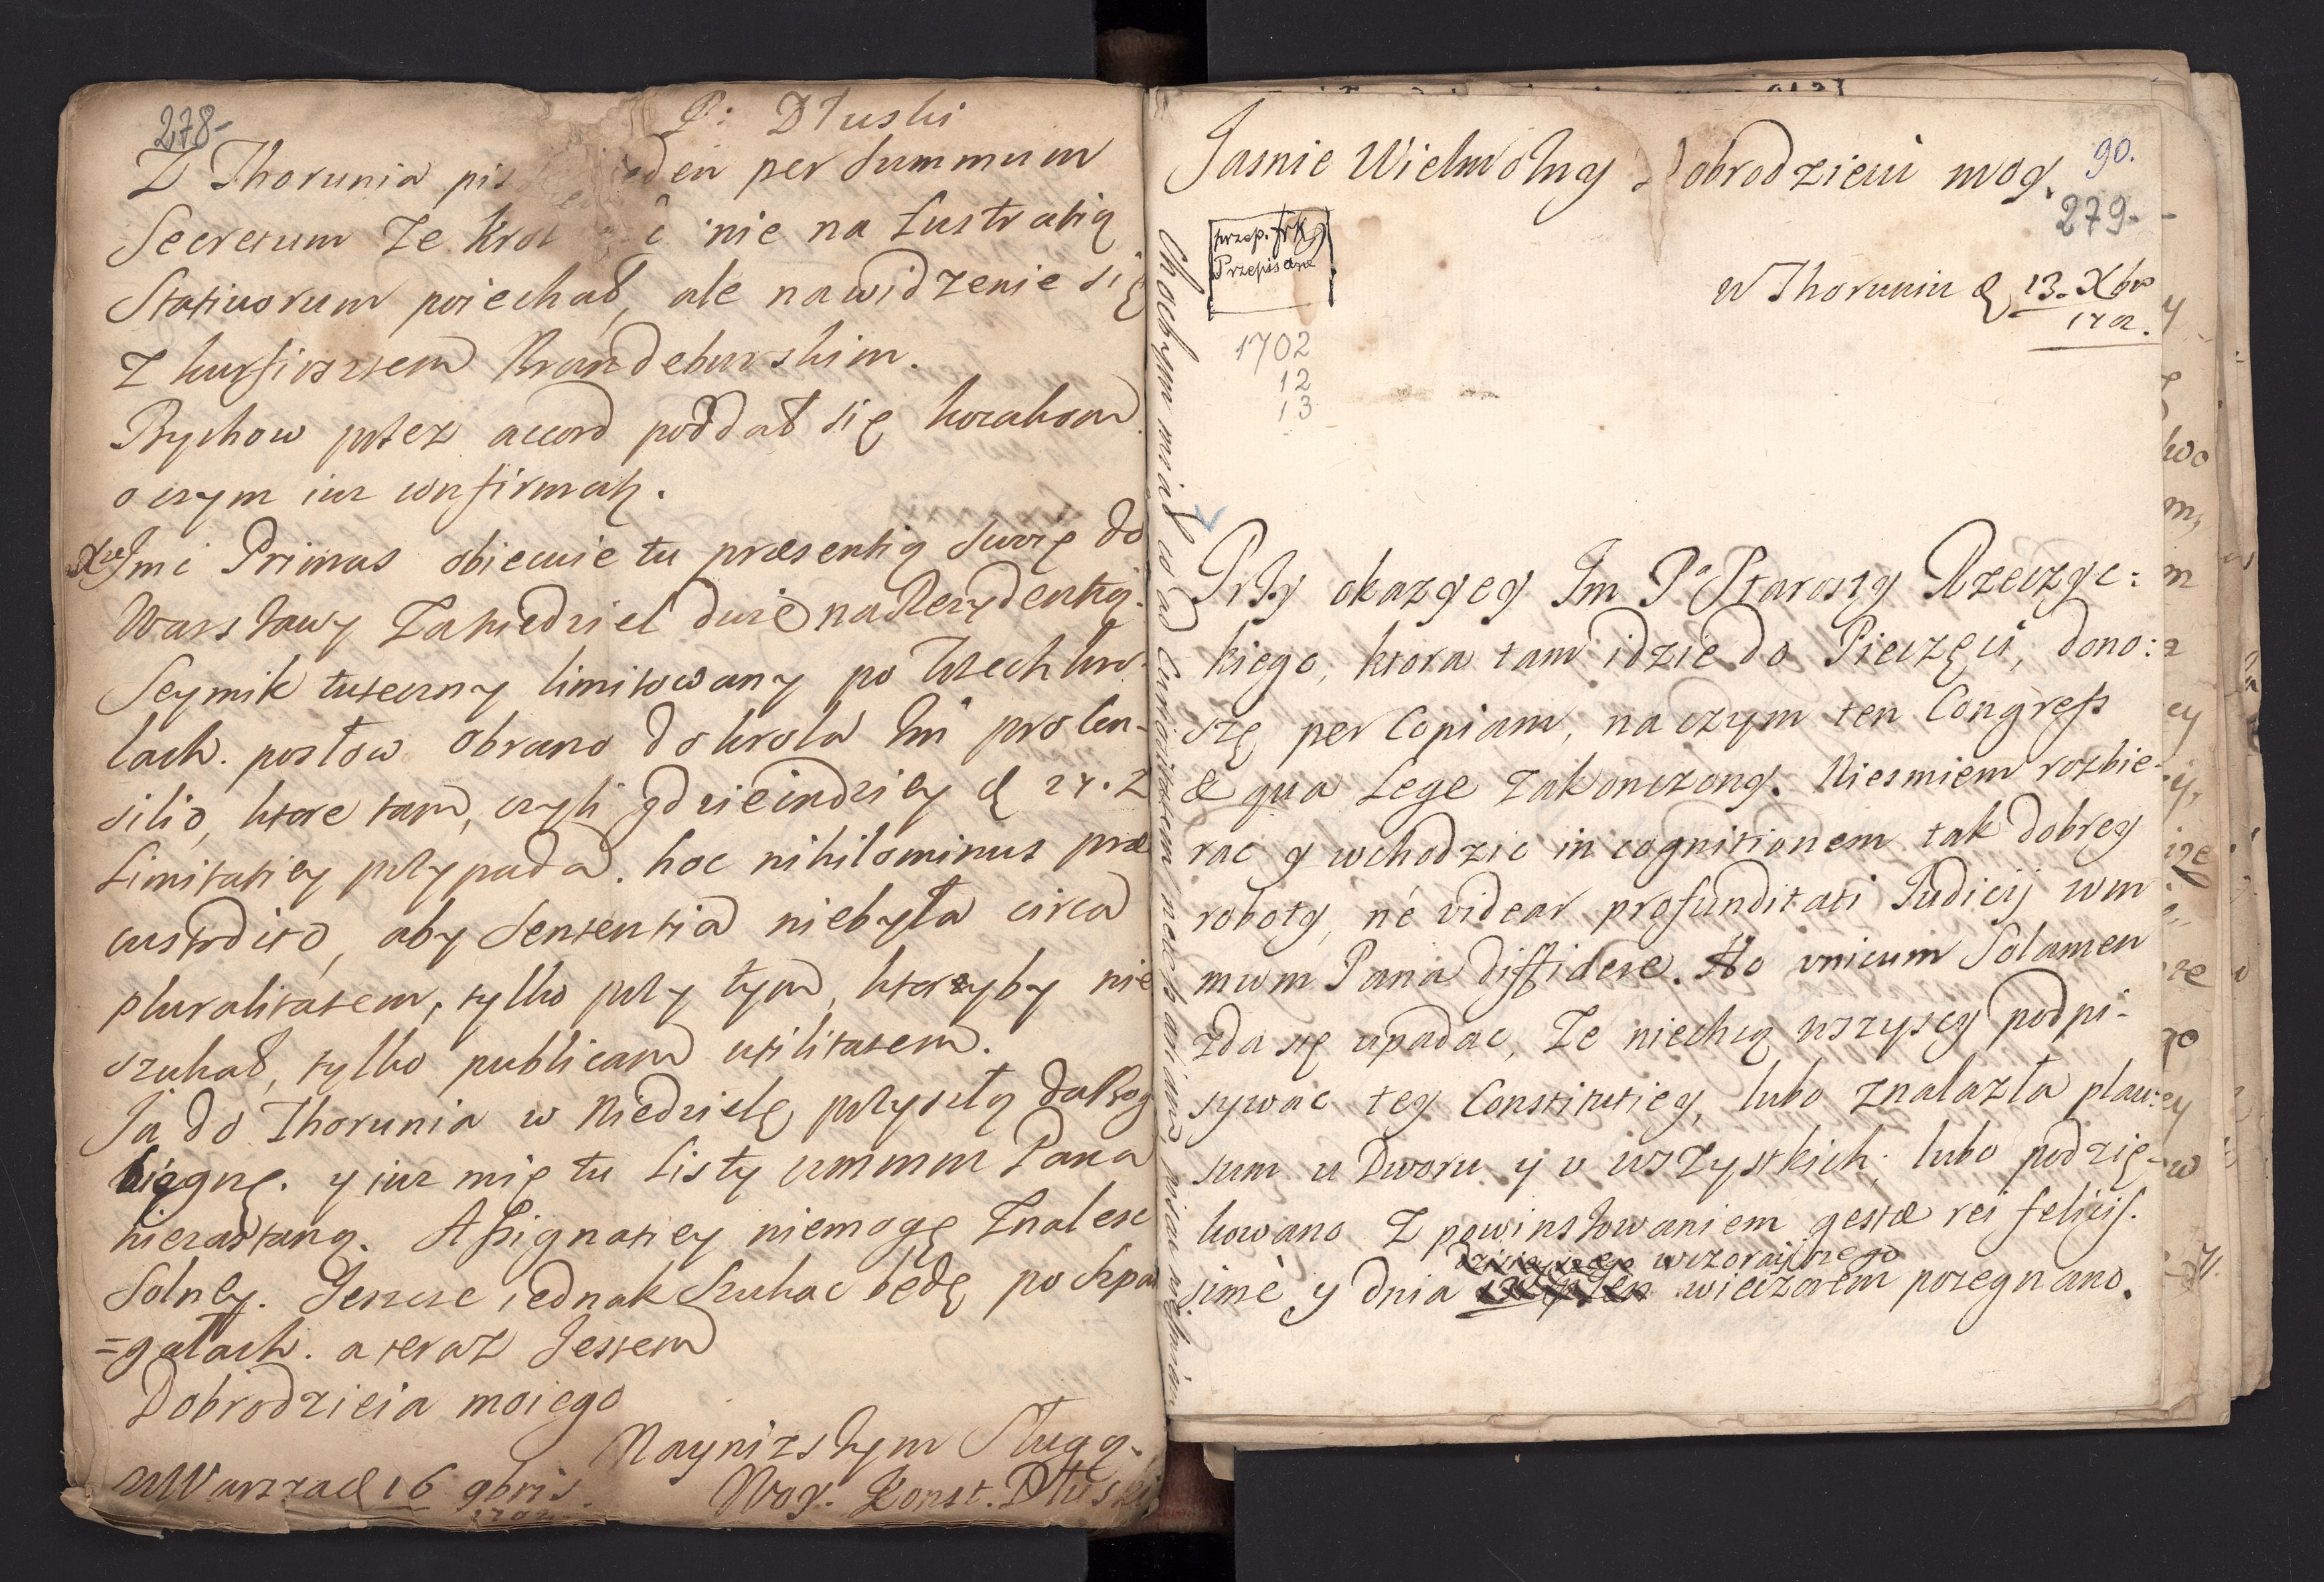 278-
P: Dłuski
Z Thorunia pis eden per Summum
Secretum Ze Krol nie na Lustratią
Stativorum poiechał, ale na widzenie się
z kurfirsztem Brandeburskim.
Bychow przez accord poddał się kozakom
o czym iuz confirmatą.
Xze Jmc Primas obiecuie tu præsentią swoię do
Warszawy Za Niedziel dwie na Rezydentią.
Seymik tuteczny limitowany po Trzech Kro-
lach. posłow obrano do krola Jmci pro Con-
silio, ktore tam, czyli gdzieindziey d 27. Z
Limitatiey przypada. hoc nihilominus præ
custodito, aby Sententia niebyła circa
pluralitatem, tylko przy tym, ktorzyby nie
szukał, tylko publicam utilitatem.
Ja do Thorunia w Niedzielę przyszłą da Bog
biegnę. y iuz mię tu Listy wmmm Pana
niezastaną. Assignatiey niemogę Znalesc
Solney. Jeszcze iednak Szukac będę po Szpar
=gałach. a teraz Jestem
Dobrodzieia moiego
Naynizszym Sługą.
w Warsza d 16 9bris
1702
Konst. Dłuski
Jasnie Wielmozny Dobrodzieiu moy.
90.
279-
przep. frK
Przepisane
w Thoruniu d 13. Xbr
1702.
1702
12
13
Przy okazyey Jm Pa Starosty Rzeczyc:
kiego, ktora tam idzie do Pieczęci, dono:
szę per Copiam, na czym ten Congress
& qua Lege zakonczony. Niesmiem rozbie-
rac y wchodzic in cognitionem tak dobrey
roboty, ne videar profunditati Judicij wm
mwm Pana diffidere. To unicum Solamen
zda się upadac, Ze niechcą wszyscy podpi-
sywac tey Constitutiey, lubo znalazła plau:
sum u Dworu y u wszystkich; lubo podzię-
kowano Z powinszowaniem gestæ rei felicis.
dzisieyszego wczorayszego
sime y dnia wieczorem pozegnano.
Chocbym miał co ad